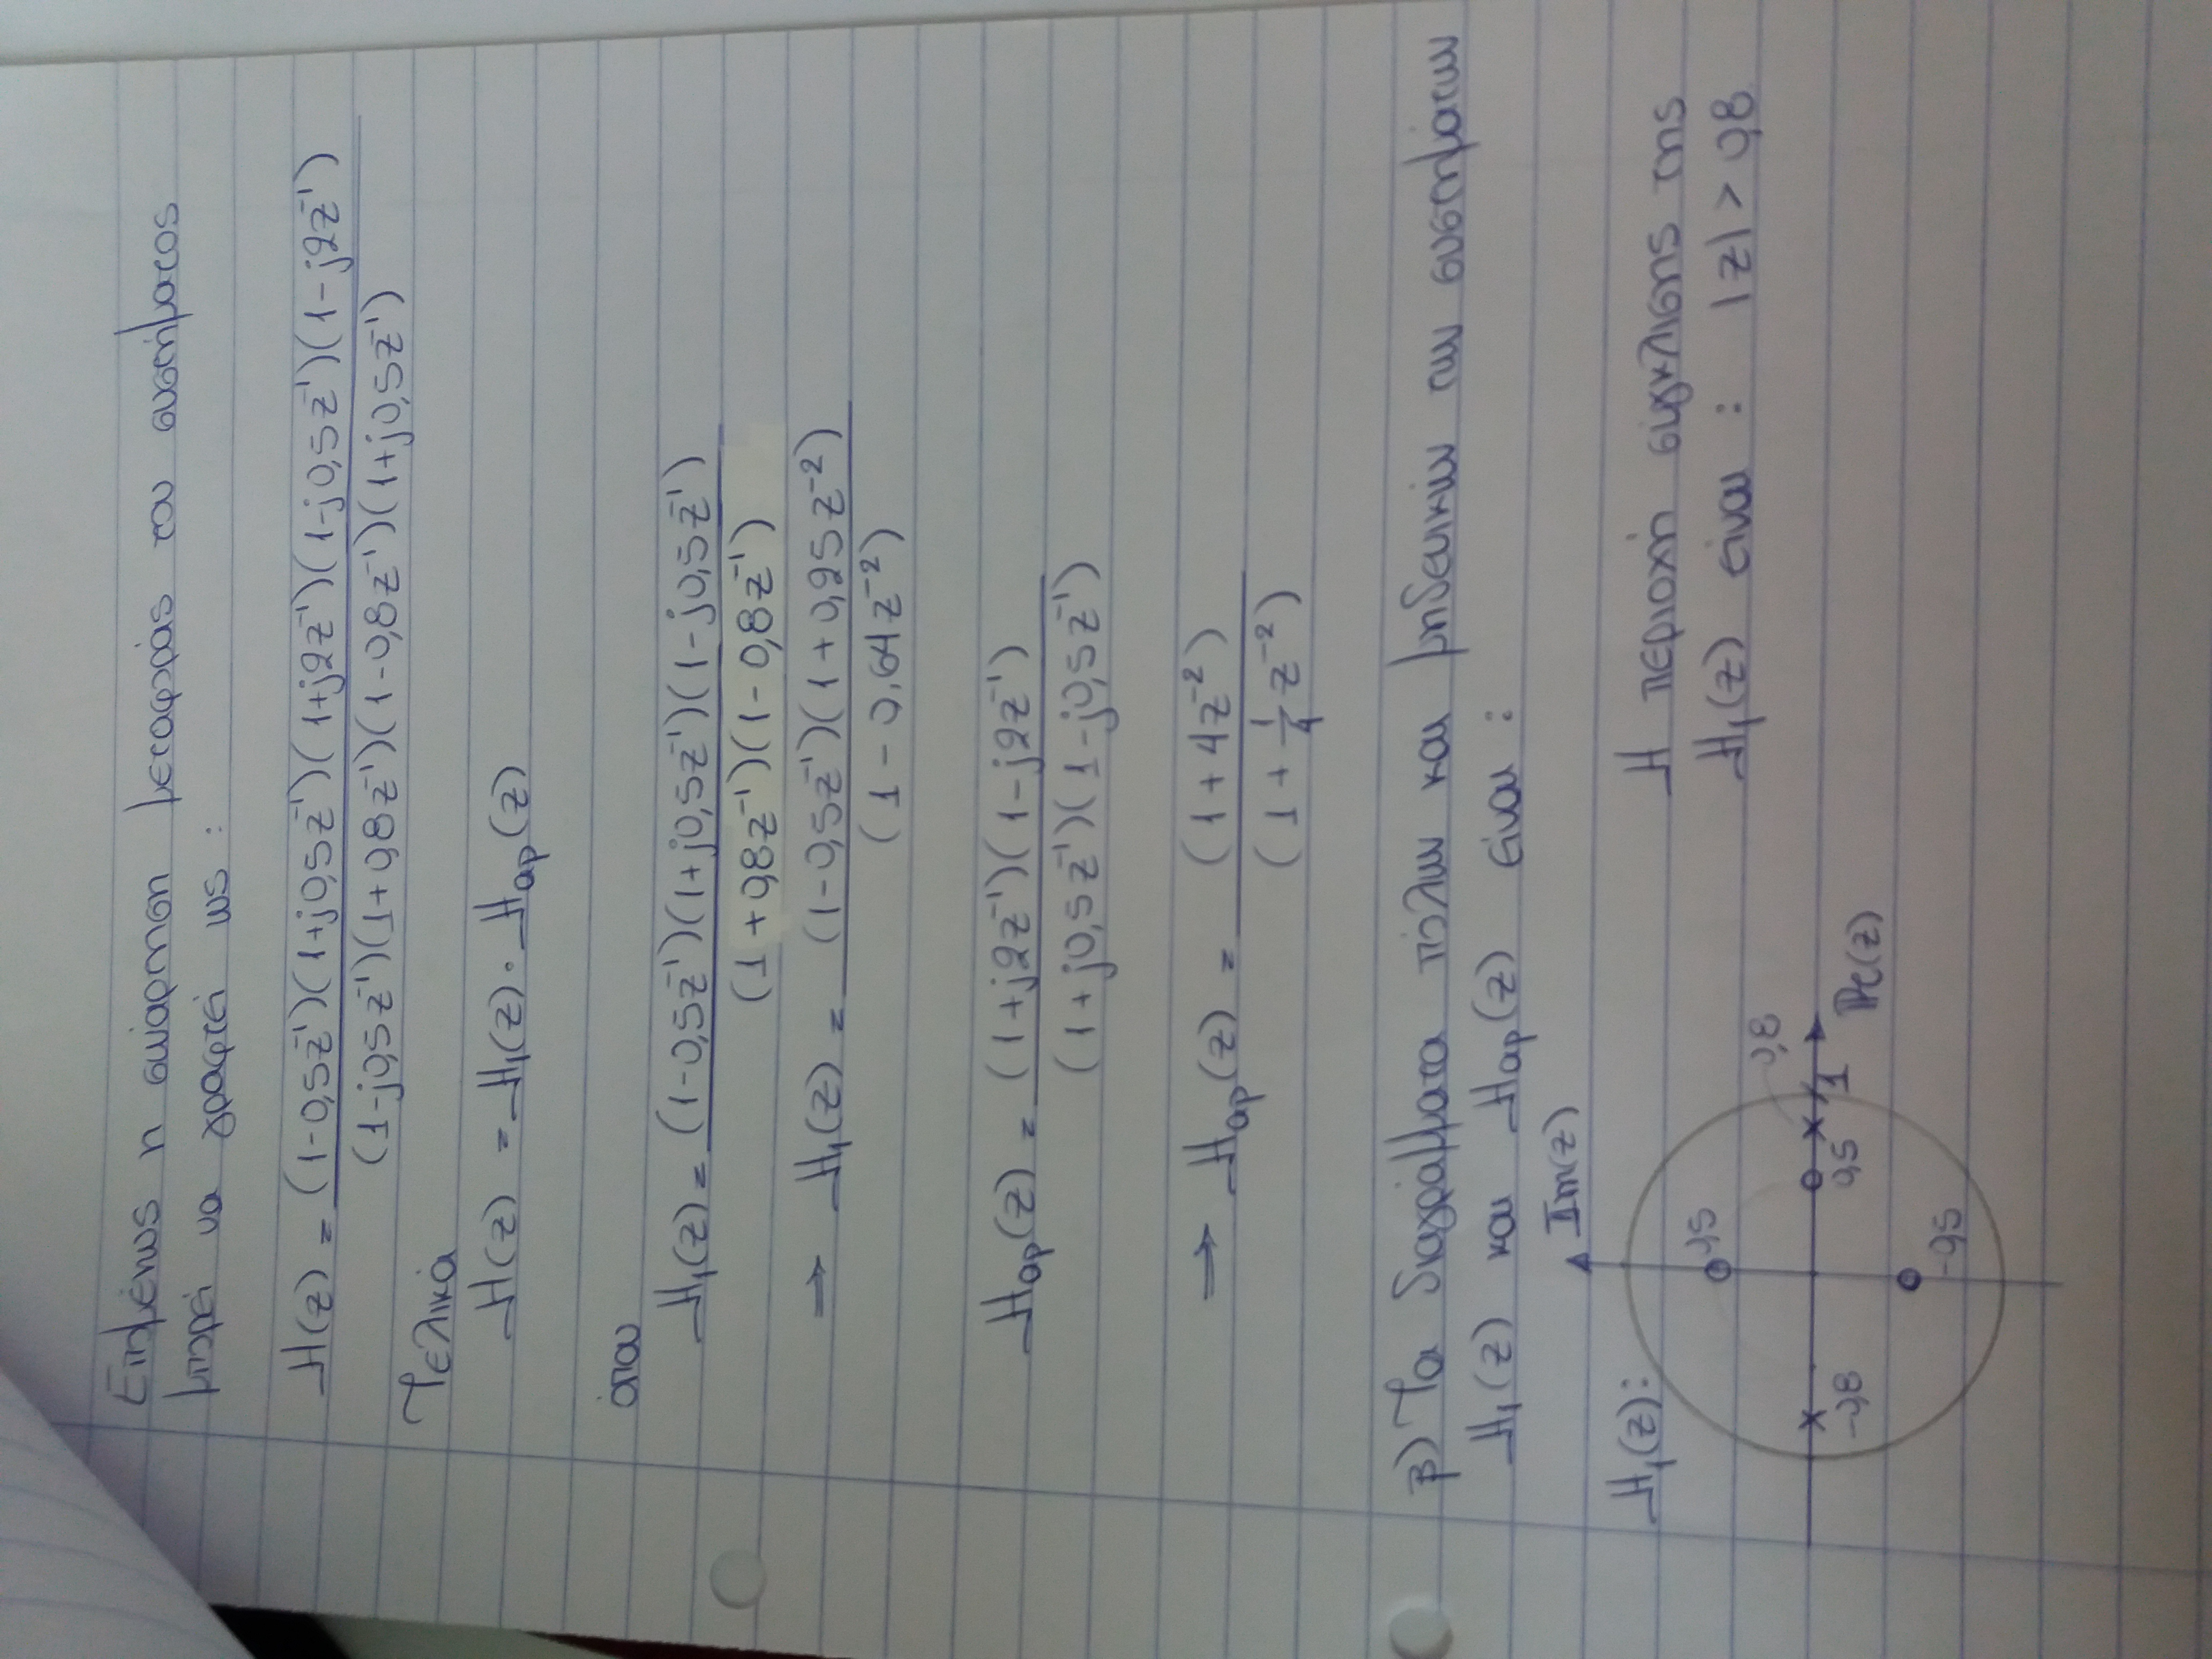 Επομένως η συνάρτηση μεταφοράς του συστήματος
μπορεί να γραφτεί ως :
H(z) = (1-0,5z⁻¹)(1+j0,5z⁻¹)(1+j2z⁻¹)(1-j0,5z⁻¹)(1-j2z⁻¹)
(1-j0,5z⁻¹)(1+0,8z⁻¹)(1-0,8z⁻¹)(1+j0,5z⁻¹)
Τελικά
H(z) = H₁(z) · Hap(z)
όπου
H₁(z) = (1-0,5z⁻¹)(1+j0,5z⁻¹)(1-j0,5z⁻¹)
(1+0,8z⁻¹)(1-0,8z⁻¹)
⇒ H₁(z) = (1-0,5z⁻¹)(1+0,25z⁻²)
(1-0,64z⁻²)
Hap(z) = (1+j2z⁻¹)(1-j2z⁻¹)
(1+j0,5z⁻¹)(1-j0,5z⁻¹)
⇒ Hap(z) = (1+4z⁻²)
(1+1/4 z⁻²)
β) Τα διαγράμματα πόλων και μηδενικών των συστημάτων
H₁(z) και Hap(z) είναι :
Im(z)
H₁(z):
Η περιοχή σύγκλισης της
0,5
H₁(z) είναι : |z| > 0,8
0,8
-0,8
0,5
1
Re(z)
-0,5